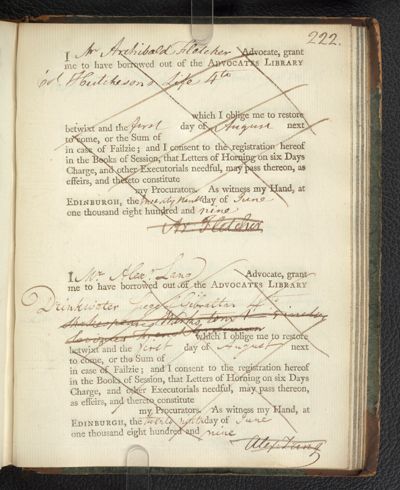 222.
I Mr Archibald Fletcher Advocate, grant
me to have borrowed out of the ADVOCATES LIBRARY
Col Hutchesons Life 4to
which I oblige me to restore
betwixt and the first day of August next
to come, or the Sum of
in case of Failzie; and I consent to the registration hereof
in the Books of Session, that Letters of Horning on six Days
Charge, and other Executorials needful, may pass thereon, as
effeirs, and thereto constitute
my Procurators. As witness my Hand, at
EDINBURGH, the twenty ninth day of June
one thousand eight hundred and nine
Ar. Fletcher
I Mr Alexr Lang Advocate, grant
me to have borrowed out of the ADVOCATES LIBRARY
Drinkwater Siege Gibraltar 4to
Shakespeares Works tom 1
which I oblige me to restore
betwixt and the First day of August next
to come, or the Sum of
in case of Failzie; and I consent to the registration hereof
in the Books of Session, that Letters of Horning on six Days
Charge, and other Executorials needful, may pass thereon, as
effeirs, and thereto constitute
my Procurators. As witness my Hand, at
EDINBURGH, the day of June
one thousand eight hundred and nine
Alex Lang